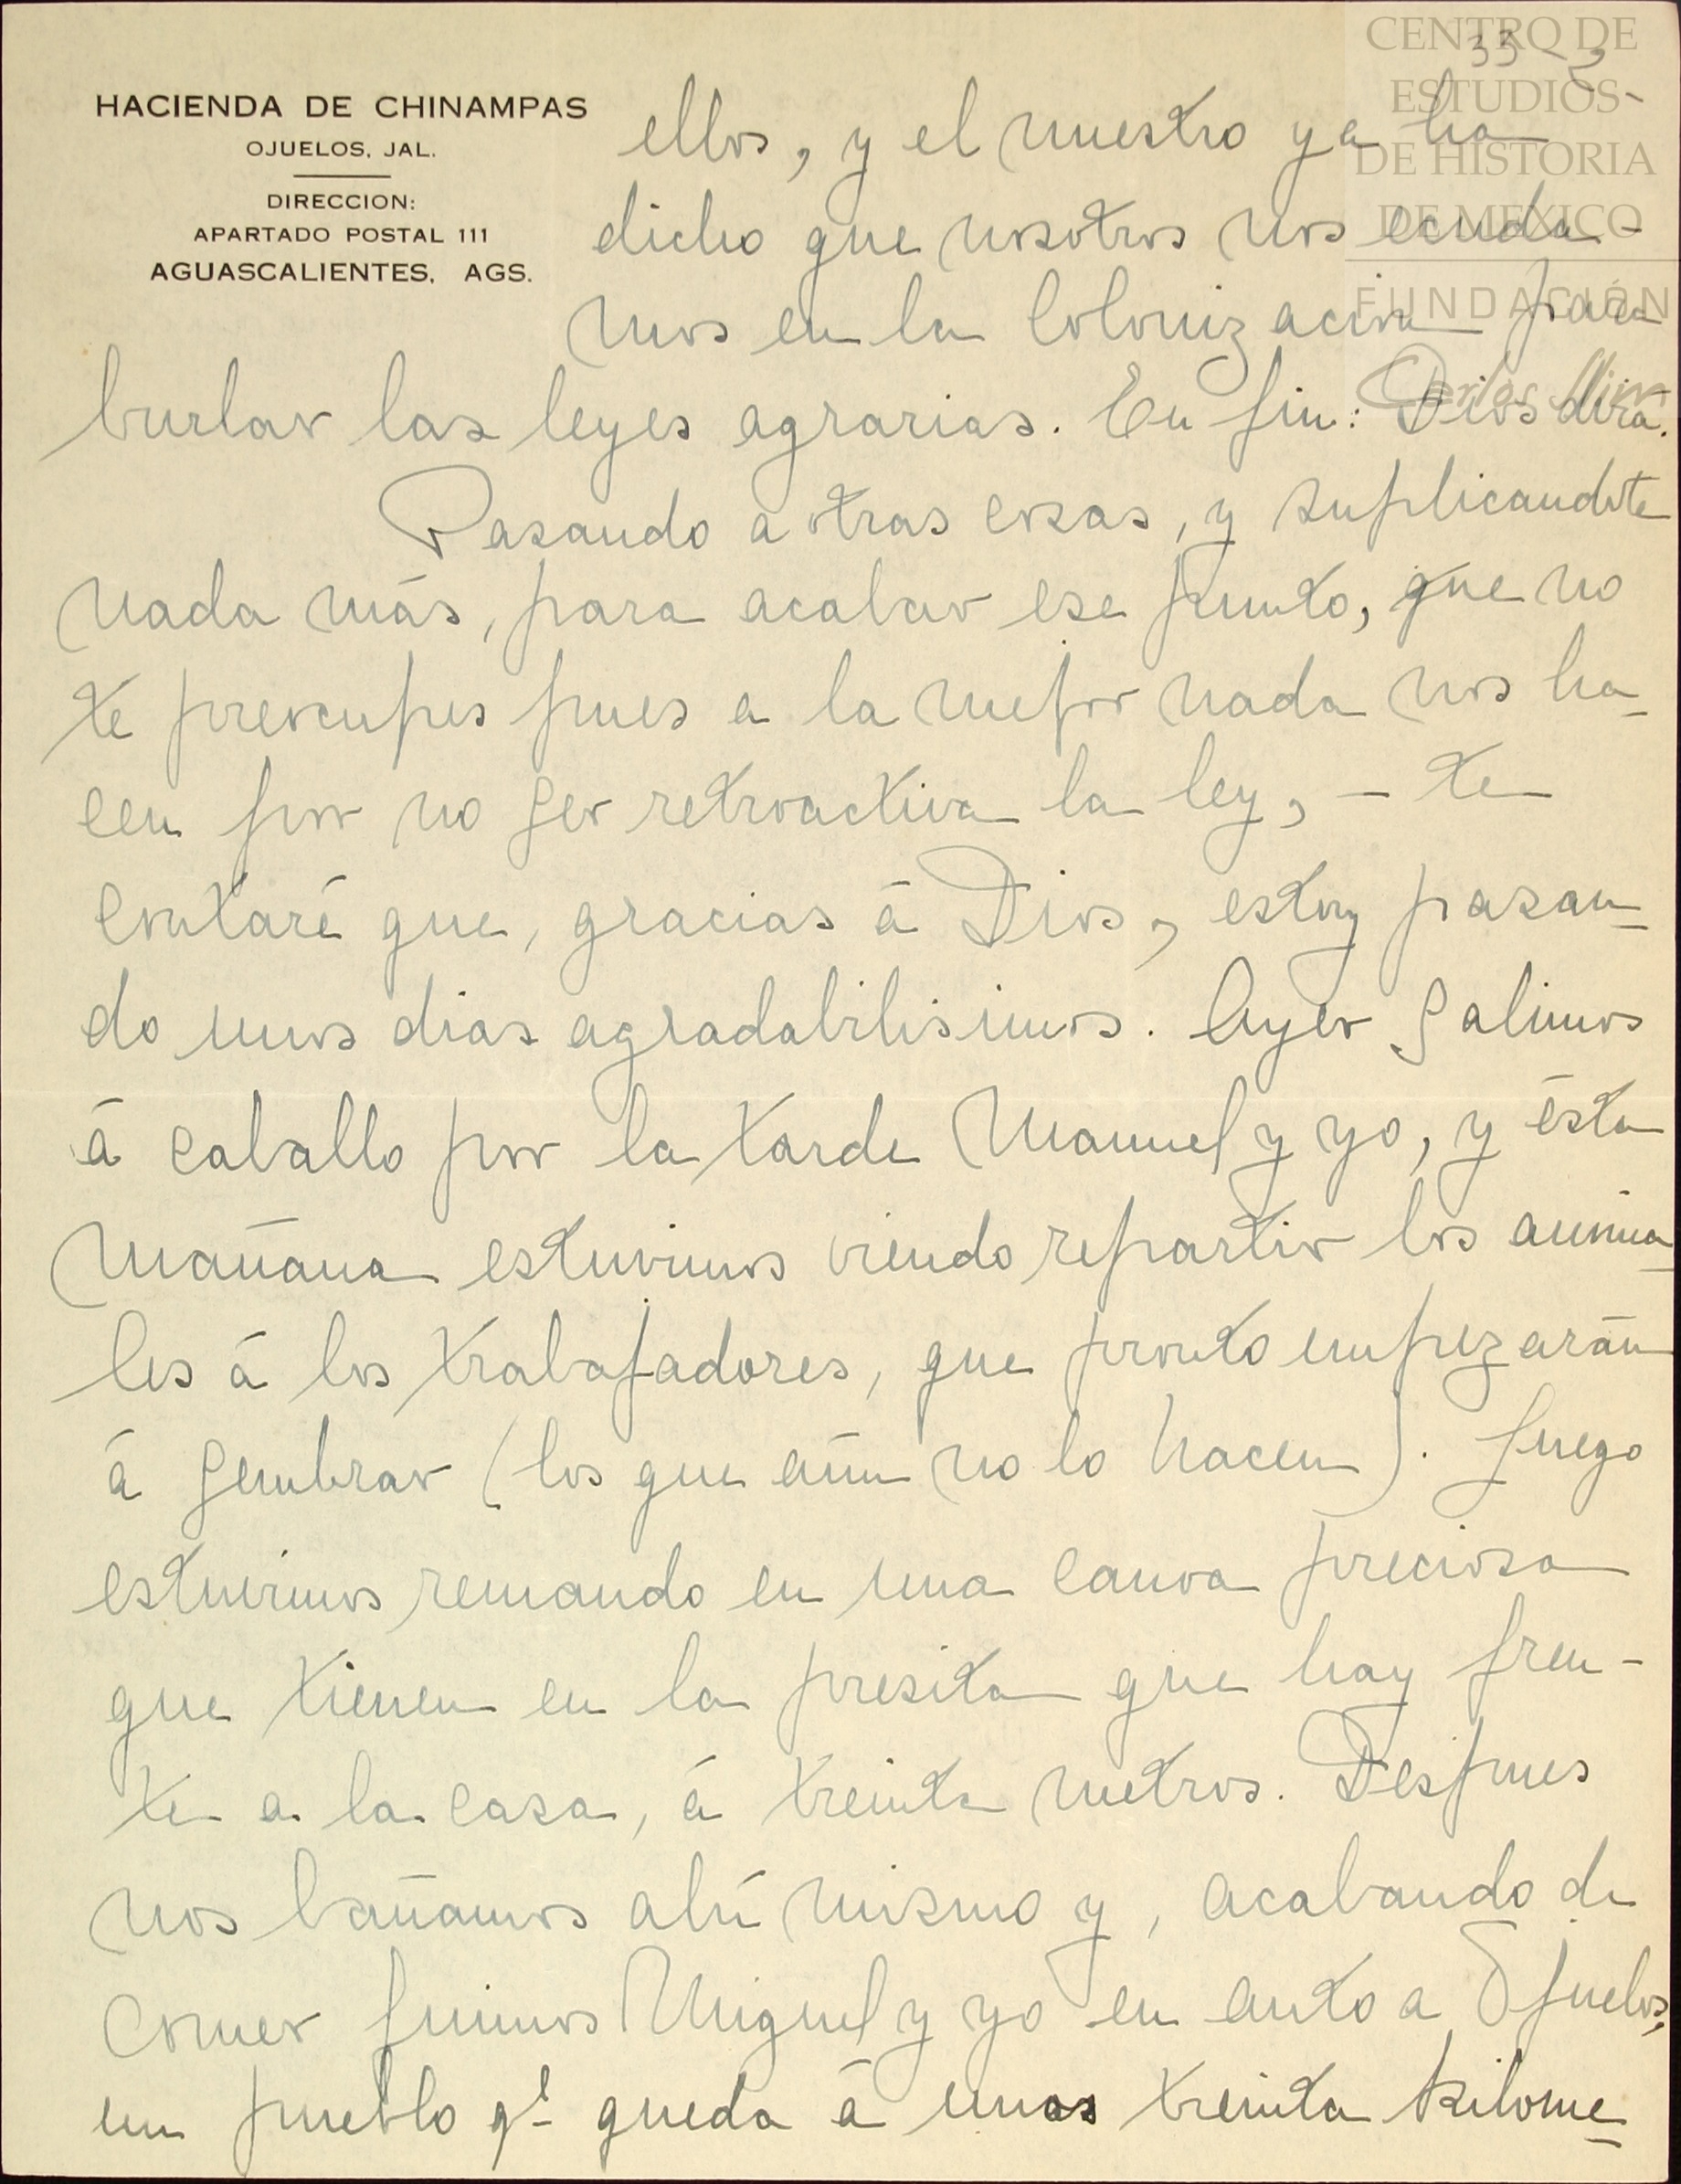 CENTRO DE
ESTUDIOS
DE HISTORIA
DE MÉXICO
FUNDACIÓN
Carlos Slim
33
HACIENDA DE CHINAMPAS
OJUELOS, JAL.
DIRECCION:
APARTADO POSTAL 111
AGUASCALIENTES, AGS.
ellos, y el nuestro ya ha
dicho que nosotros nos escuda-
mos en la colonizacion para
burlar las leyes agrarias. En fin: Dios dirá.
Pasando a otras cosas, y suplicandote
nada más, para acabar ese punto, que no
te preocupes pues a la mejor nada nos ha-
cen por no ser retroactiva la ley, - te
contaré que, gracias á Dios, estoy pasan-
do unos dias agradabilisimos. Ayer salimos
á caballo por la tarde Manuel y yo, y ésta
mañana estuvimos viendo repartir los anima-
les á los trabajadores, que pronto empezarán
á sembrar (los que aún no lo hacen). Luego
estuvimos remando en una canoa preciosa
que tienen en la presita que hay fren-
te a la casa, á treinta metros. Despues
nos bañamos ahí mismo y, acabando de
comer fuimos Miguel y yo en auto a Ojuelos,
un pueblo qe queda á unos treinta kilome-